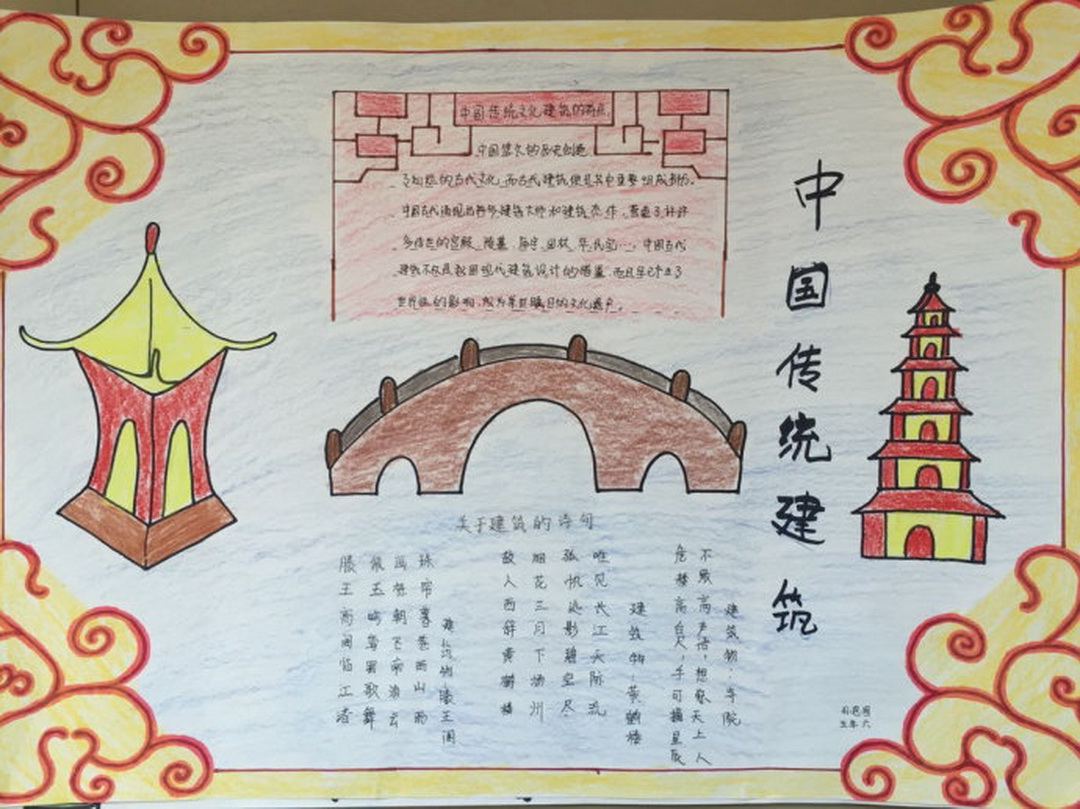 中国传统建筑
中国传统文化建筑的特点
中国悠久的历史创造
了灿烂的古代文化,而古代建筑便是其中重要组成部分。
中国古代涌现出许多建筑大师和建筑杰作,营造了许许
多传世的宫殿、陵墓、庙宇、园林、民宅……,中国古代
建筑不仅是我国现代建筑设计的借鉴,而且早已产生了
世界性的影响,成为举世瞩目的文化遗产。
关于建筑的诗句
滕王高阁临江渚
佩玉鸣鸾罢歌舞
画栋朝飞南浦云
珠帘暮卷西山雨
建筑物:滕王阁
故人西辞黄鹤楼
烟花三月下扬州
孤帆远影碧空尽
唯见长江天际流
建筑物:黄鹤楼
危楼高百尺,手可摘星辰
不敢高声语,恐惊天上人
建筑物:寺院
五年六